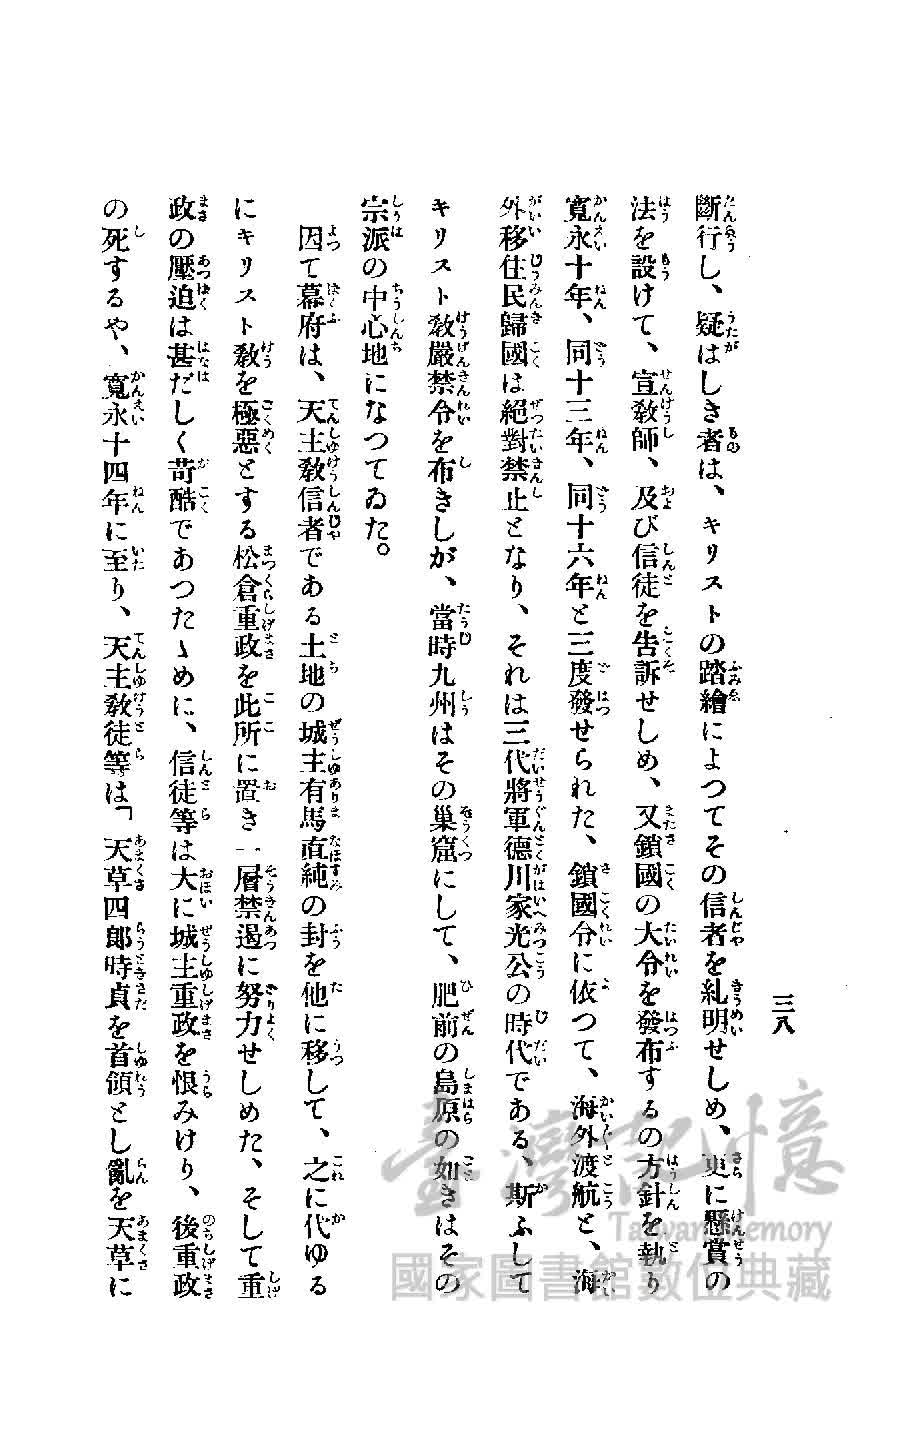 三八
斷行し、疑はしき者は、キリストの踏繪によつてその信者を糺明せしめ、更に懸賞の
法を設けて、宣敎師、及び信徒を告訴せしめ、又鎖國の大令を發布するの方針を執り
寬永十年、同十三年、同十六年と三度發せられた、鎖國令に依つて、海外渡航と、海
外移住民歸國は絕對禁止となり、それは三代將軍德川家光公の時代である、斯ふして
キリスト敎嚴禁令を布きしが、當時九州はその巢窟にして、肥前の島原の如きはその
宗派の中心地になつてゐた。
因て幕府は、天主敎信者である土地の城主有馬直純の封を他に移して、之に代ゆる
にキリスト敎を極惡とする松倉重政を此所に置き一層禁遏に努力せしめた、そして重
政の壓迫は甚だしく苛酷であつたゝめに、信徒等は大に城主重政を恨みけり、後重政
の死するや、寬永十四年に至り、天主敎徒等は「天草四郎時貞を首領とし亂を天草に
臺灣記憶
Taiwan Memory
國家圖書館數位典藏